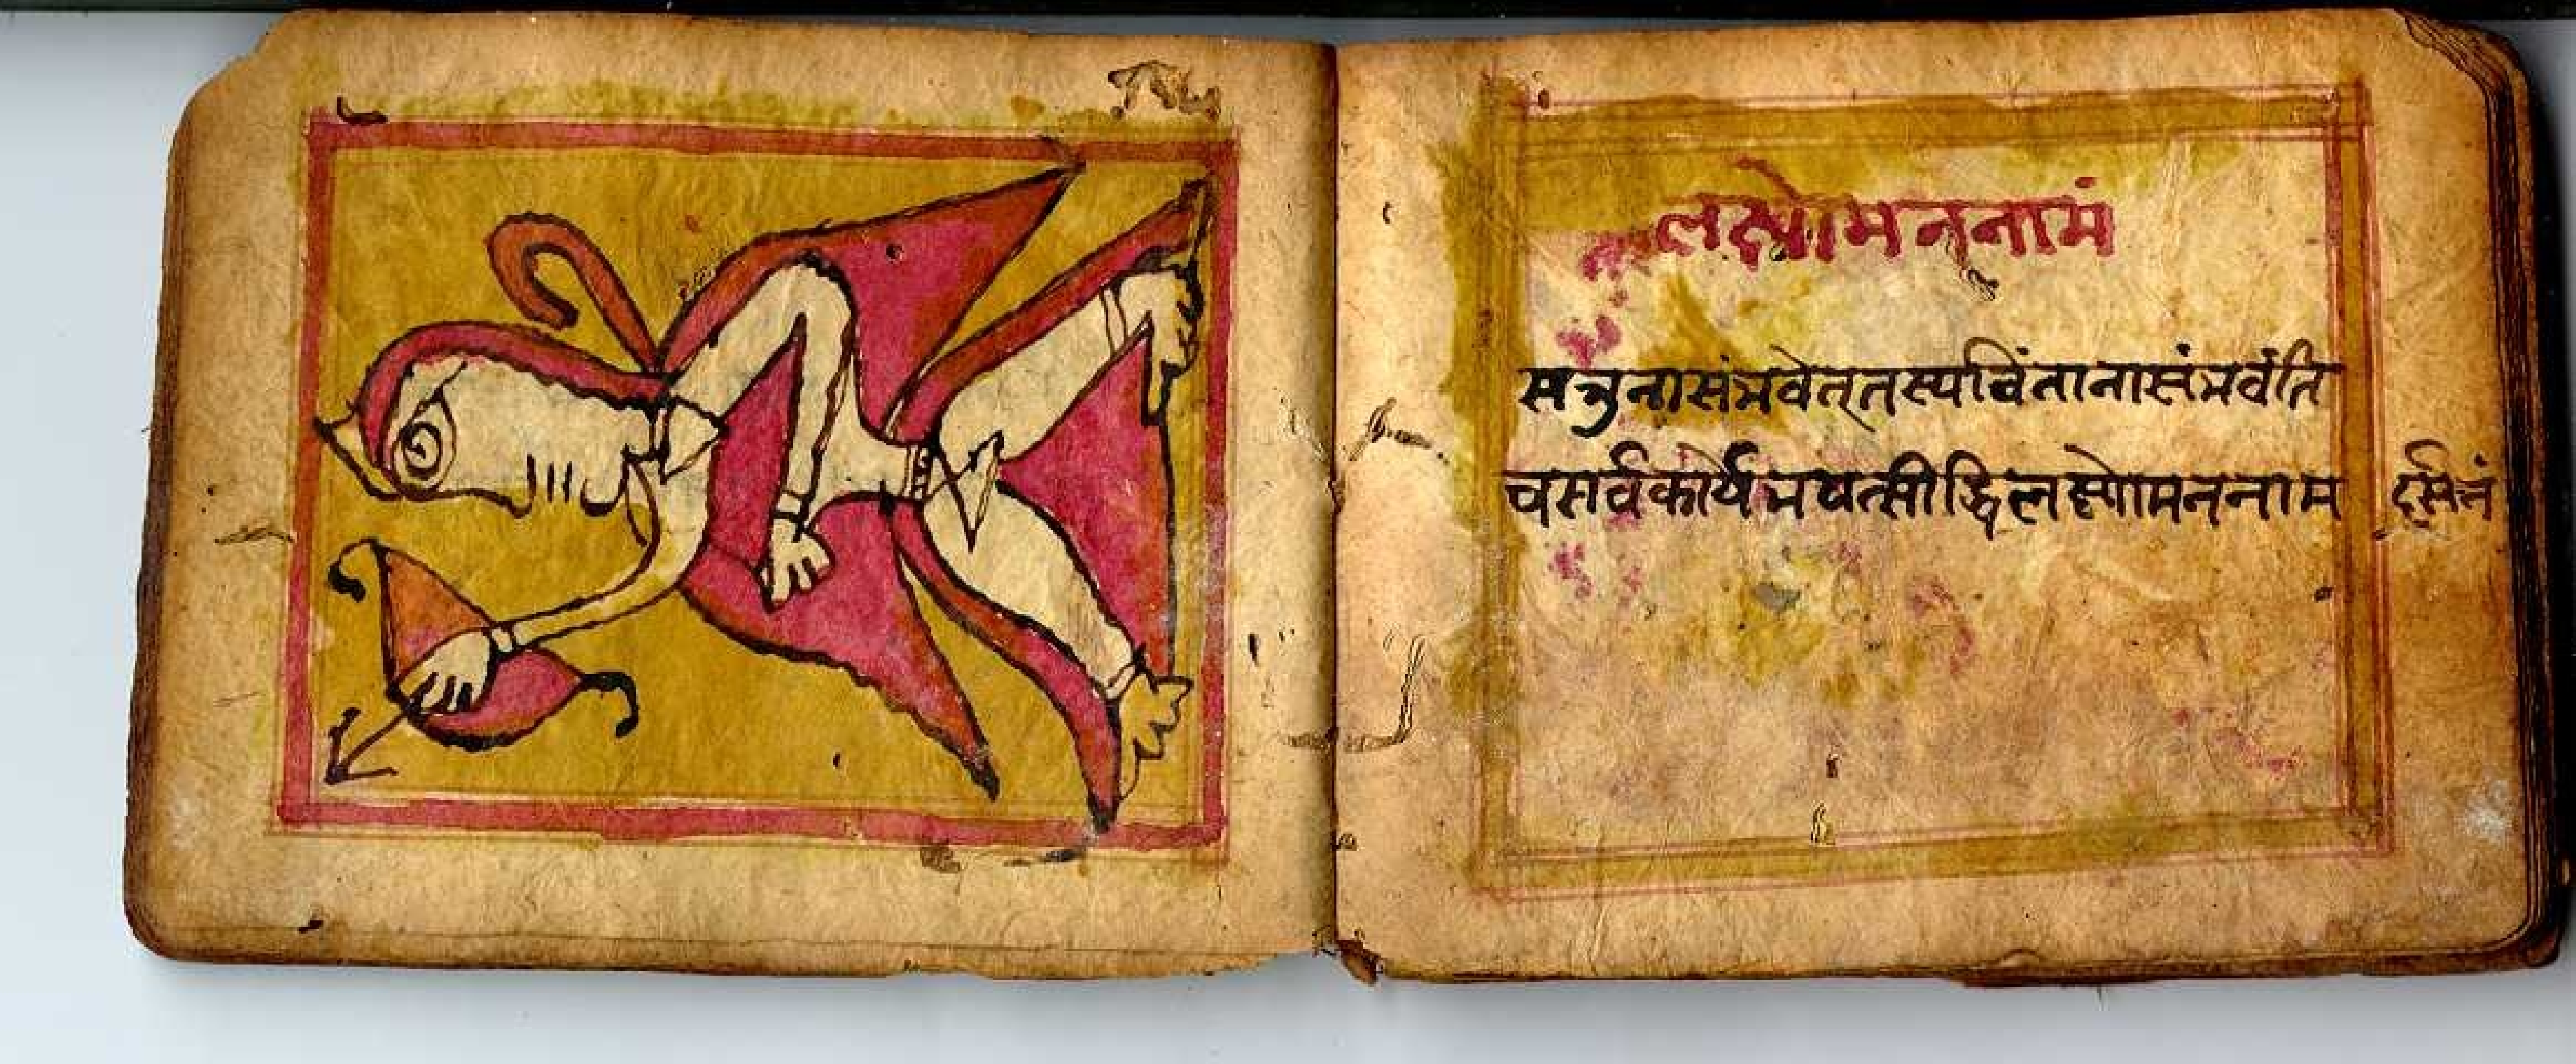 लक्ष्णोमननामं
सत्रुनासंभवेत्तस्यचिंतानासंभवंति
चसर्वकार्यभवत्सीद्धिलक्ष्णोमननाम
दर्सनं